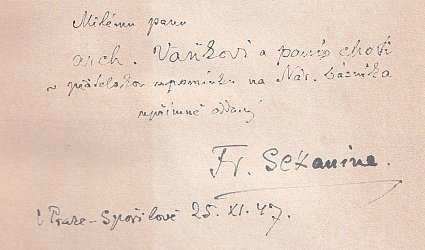 Milému panu
arch. Vaňkovi a paní choti
v přátelskou upomínku na Nár.
upřímně oddaný
Fr. Sekanina.
V Praze-Spořilově 25. XI. 47.